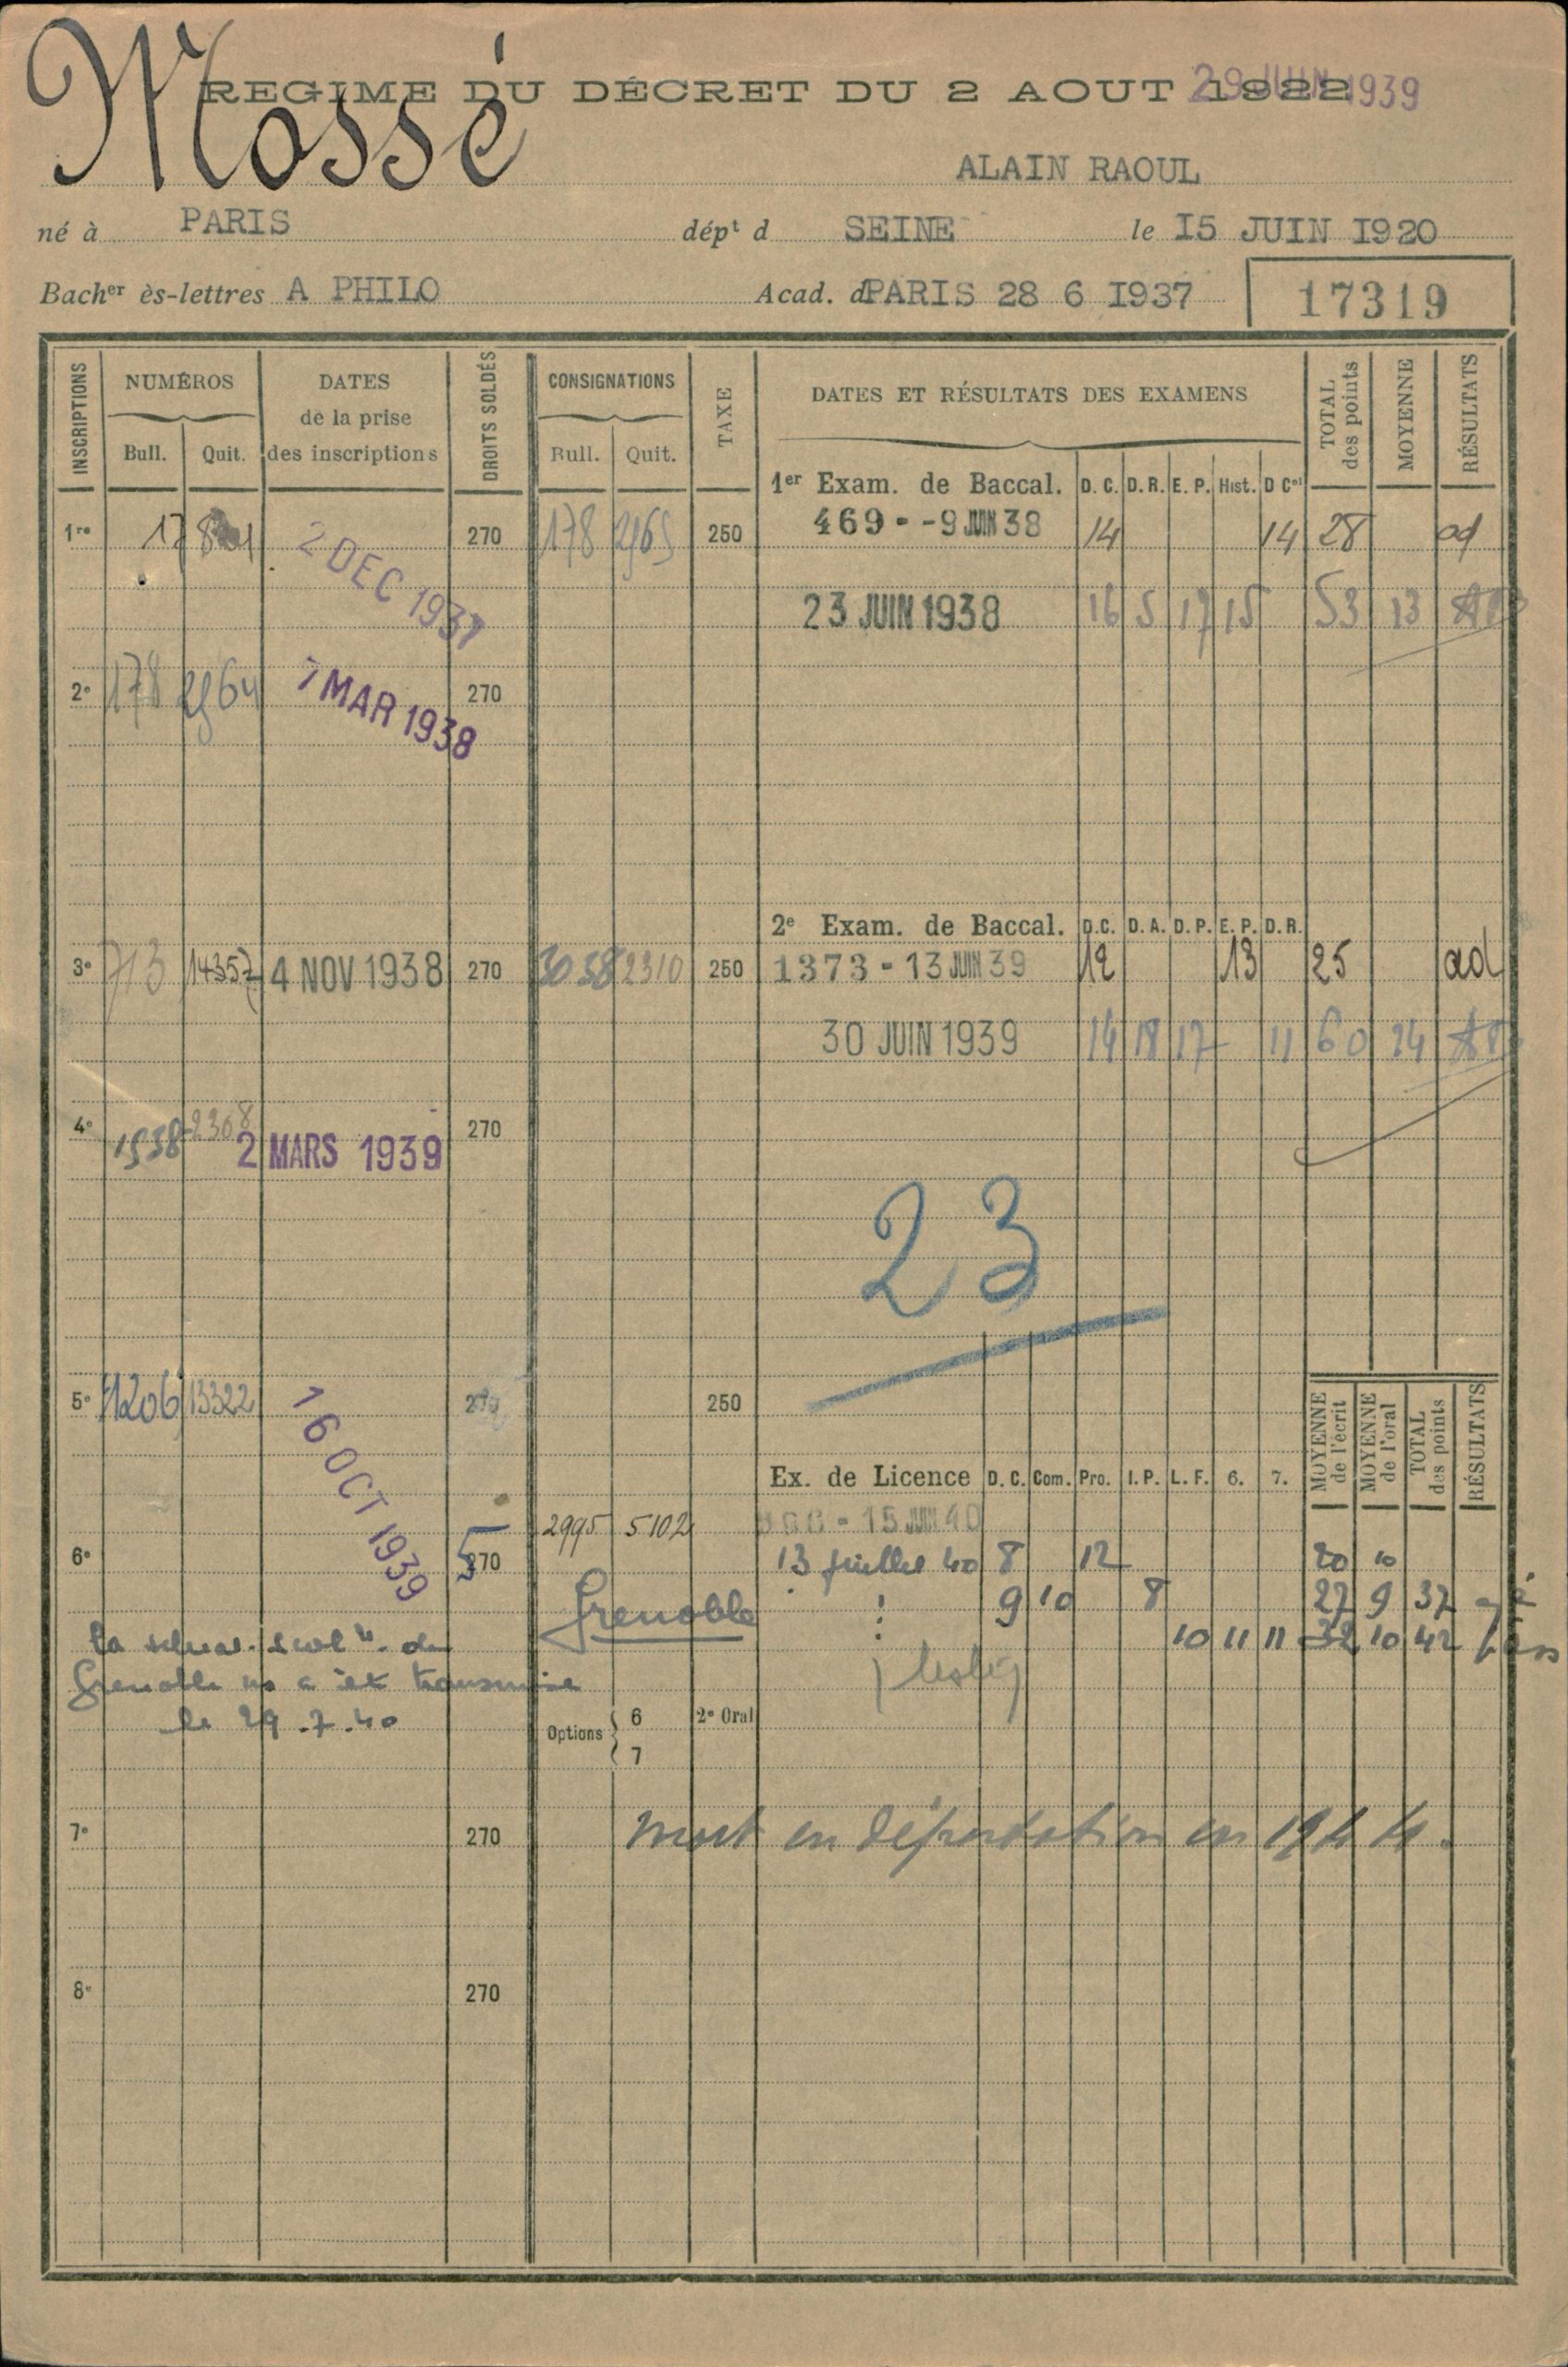 Mossé
REGIME DU DÉCRET DU 2 AOUT 1922
29 JUIN 1939
ALAIN RAOUL
né à PARIS dépt d SEINE le I5 JUIN I920
Bacher ès-lettres A PHILO Acad. d PARIS 28 6 I937
17319
INSCRIPTIONS NUMÉROS DATES de la prise des inscriptions DROITS SOLDÉS CONSIGNATIONS TAXE DATES ET RÉSULTATS DES EXAMENS TOTAL des points MOYENNE RÉSULTATS
Bull. Quit. Bull. Quit.
1er Exam. de Baccal. D. C. D. R. E. P. Hist. D Cel
1re 2 DEC 1937 270 178 250 469 - -9 JUIN 38 14 14 28 ad
23 JUIN 1938 16 5 17 15 53 13
2e 178 7 MAR 1938 270
2e Exam. de Baccal. D.C. D. A. D. P. E. P. D. R.
3e 713 14357 4 NOV 1938 270 3058 2310 250 1373 - 13 JUIN 39 12 13 25 ad
30 JUIN 1939 14 18 17 11 60 14
4e 2308 2 MARS 1939 270
23
5e 1206 13322 16 OCT 1939 270 250
MOYENNE de l'écrit MOYENNE de l'oral TOTAL des points RÉSULTATS
Ex. de Licence D. C. Com. Pro. I. P. L. F. 6. 7.
2995 5102 - 15 JUIN 40
6e 5 270 13 juillet 40 8 12 20 10
Grenoble 9 10 8 27 9 37
10 11 11 32 10 42
la scol. de
Grenoble a été transmise
le 29.7.40
Options 6 2e Oral
7
7e 270 Mort en déportation en 1944.
8e 270